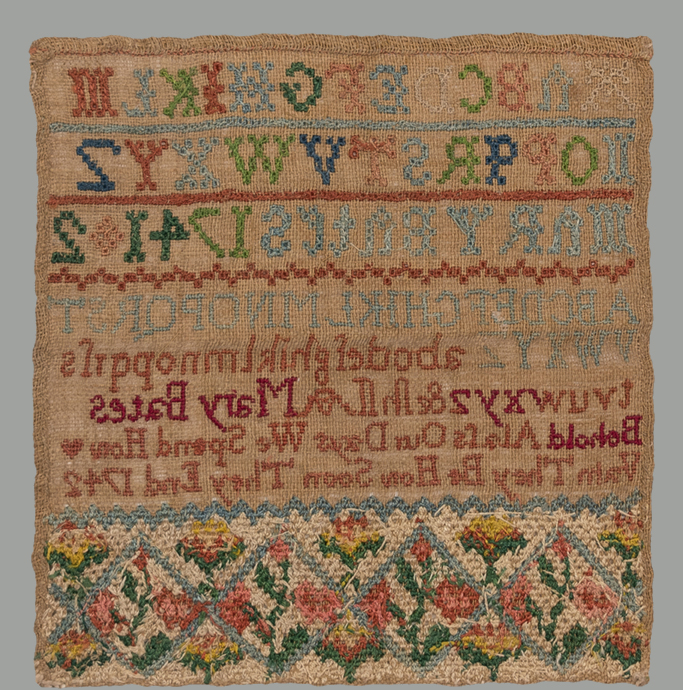 A B C D E F G H I K L M
N O P q R S T V W X Y Z
MARY BAtES 1741 2
ABCDEFGHIKLMNOPQRST
VWXYZ
abcdefghiklmnopqrſs
tvuwxyz& Mary Bates
Behold Alaſs Our Days We Spend How
Vain They Be How Soon They End 1742